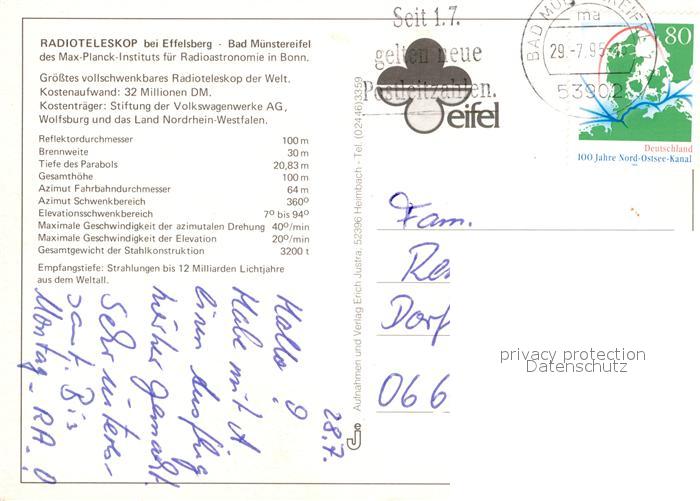 RADIOTELESKOP bei Effelsberg - Bad Münstereifel
des Max-Planck-Instituts für Radioastronomie in Bonn.
Größtes vollschwenkbares Radioteleskop der Welt.
Kostenaufwand: 32 Millionen DM.
Kostenträger: Stiftung der Volkswagenwerke AG,
Wolfsburg und das Land Nordrhein-Westfalen.
Reflektordurchmesser 100 m
Brennweite 30 m
Tiefe des Parabols 20,83 m
Gesamthöhe 100 m
Azimut Fahrbahndurchmesser 64 m
Azimut Schwenkbereich 360°
Elevationsschwenkbereich 7° bis 94°
Maximale Geschwindigkeit der azimutalen Drehung 40°/min
Maximale Geschwindigkeit der Elevation 20°/min
Gesamtgewicht der Stahlkonstruktion 3200 t
Empfangstiefe: Strahlungen bis 12 Milliarden Lichtjahre
aus dem Weltall.
Hallo!
Habe mit
einen Ausflug
hierher gemacht.
Sehr interes-
sant. Bis
Montag - RA.
28.7.
Aufnahmen und Verlag Erich Justra, 52396 Heimbach - Tel. (02446)3359
Seit 1.7.
gelten neue
Postleitzahlen.
eifel
BAD MÜNSTEREIFEL
ma
29.-7.95
53902
80
Deutschland
100 Jahre Nord-Ostsee-Kanal
Fam.
Re
Dorf
06 6
privacy protection
Datenschutz